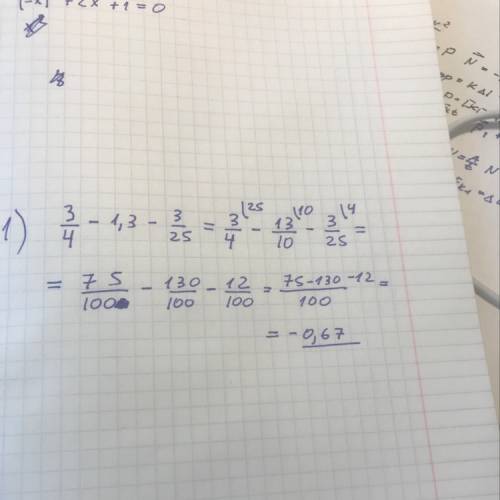 (-x) + 2x + 1 = 0
1) 3/4 - 1,3 - 3/25 = 3/4 \25 - 13/10 \10 - 3/25 \4 =
= 75/100 - 130/100 - 12/100 = 75-130-12/100 =
= - 0,67
N = -